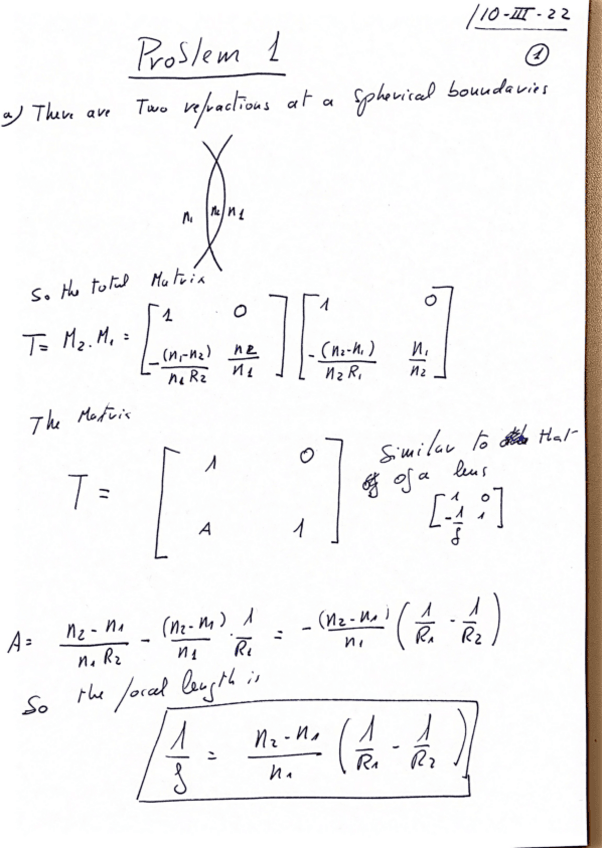 10-III-22
Problem 1
1
a) There are Two refractions at a spherical boundaries
n₁ n₂ n₁
So the total Matrix
T = M₂ · M₁ = [1 0; -(n₁-n₂)/(n₁R₂) n₂/n₁] [1 0; -(n₂-n₁)/(n₂R₁) n₁/n₂]
The Matrix
T = [1 0; A 1] Similar to that
of a lens
[1 0; -1/f 1]
A = (n₂-n₁)/(n₁R₂) - (n₂-n₁)/n₁ · 1/R₁ = -(n₂-n₁)/n₁ (1/R₁ - 1/R₂)
So the focal length is
1/f = (n₂-n₁)/n₁ (1/R₁ - 1/R₂)